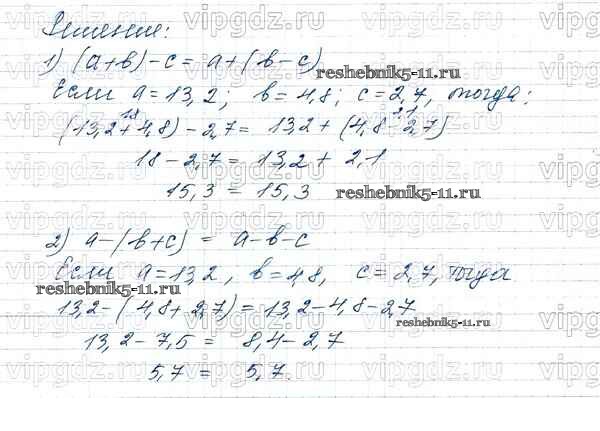 Решение:
1) (а+в)-с= а+(в-с)
Если а=13,2; в=4,8; с=2,7, тогда:
18 2,1
(13,2+4,8)-2,7= 13,2+(4,8-2,7)
18-2,7= 13,2+2,1
15,3=15,3
2) а-(в+с) = а-в-с
Если а=13,2, в=4,8, с=2,7, тогда
13,2-(4,8+2,7)=13,2-4,8-2,7
13,2-7,5= 8,4-2,7
5,7= 5,7.
reshebnik5-11.ru
reshebnik5-11.ru
reshebnik5-11.ru
reshebnik5-11.ru
vipgdz.ru